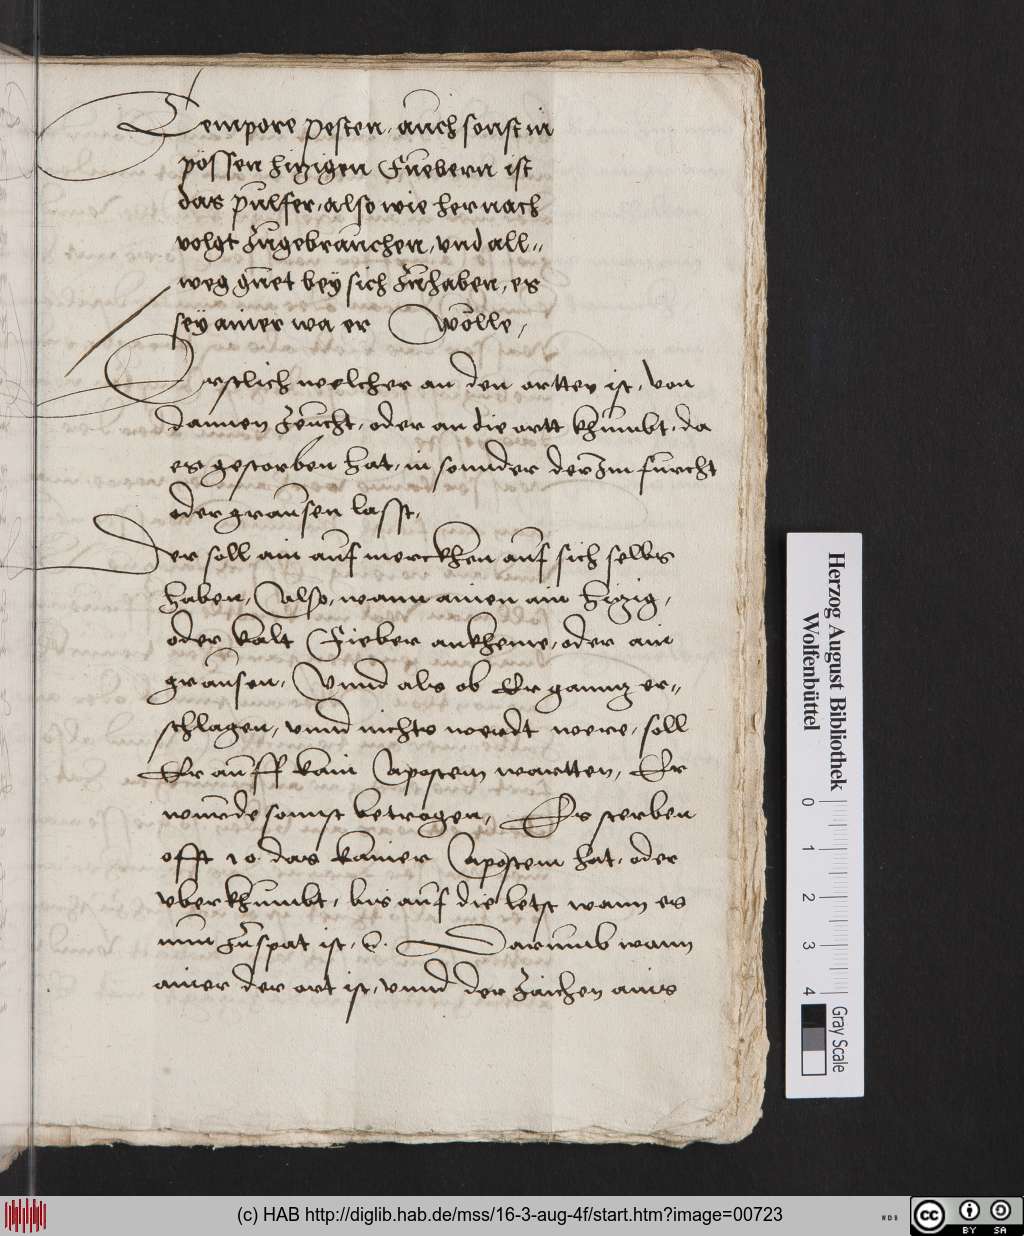 Tempore pesten, auch sonst in
pössen hizigen Fuebern ist
das pulfer, also wie hernach
volgt zugebrauchen, vnd all-
weg guet bey sich zuhaben, es
sey ainer wa er Wölle,
Erstlich welcher an den ortten ist, von
dannen zeucht, oder an die ortt khumbt, da
es gestorben hat, in sonnder der Im furcht
oder grausen lasst,
Der soll ain aufmerckhen auf sich selbs
haben, Also, wann ainen ain hizig,
oder kalt Fieber ankheme, oder ain
grausen, Vnnd als ob Er ganntz er-
schlagen, vnnd nichts werdt were, soll
Er auff kain Apostem wartten, Er
wurde sonnst betrogen, Es sterben
offt 10. das kainer Apostem hat, oder
vberkhumbt, bis auf die letst wann es
nun zuspat ist, Darumb wann
ainer der ort ist, vnnd der zaichen ains
Herzog August Bibliothek
Wolfenbüttel
0
1
2
3
4
Gray Scale
(c) HAB http://diglib.hab.de/mss/16-3-aug-4f/start.htm?image=00723
WDB
cc BY SA